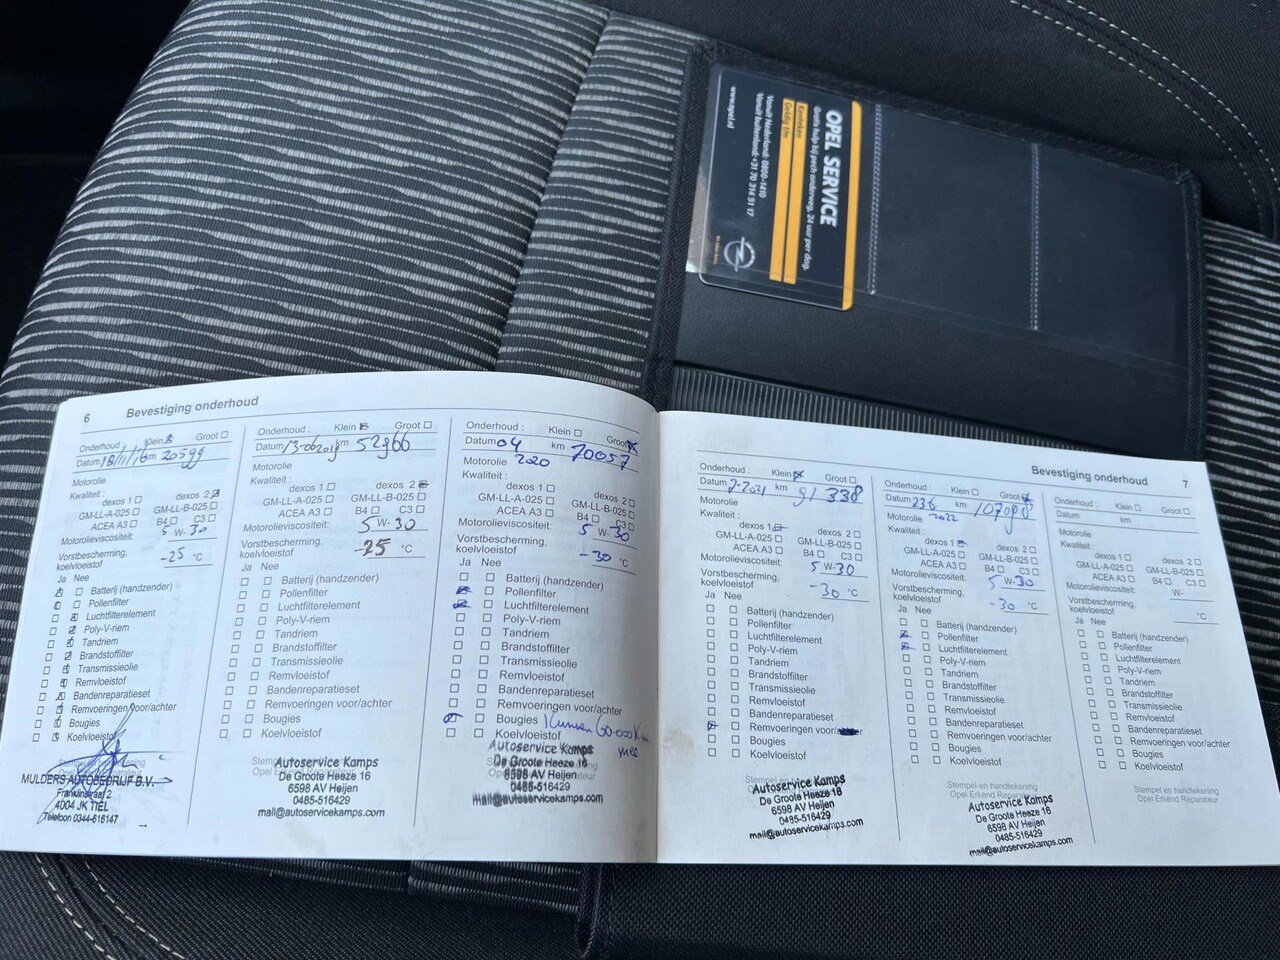 OPEL SERVICE
Gratis hulp bij pech onderweg, 24 uur per dag.
Kenteken
Geldig t/m
Vanuit Nederland: 0800-1410
Vanuit buitenland: +31 70 314 51 17
www.opel.nl
6 Bevestiging onderhoud
Onderhoud : Klein Groot
Datum 18/11/16 km 20599
Motorolie
Kwaliteit :
dexos 1 dexos 2
GM-LL-A-025 GM-LL-B-025
ACEA A3 B4 C3
Motorolieviscositeit: 5 W- 30
Vorstbescherming,
koelvloeistof -25 °C
Ja Nee
Batterij (handzender)
Pollenfilter
Luchtfilterelement
Poly-V-riem
Tandriem
Brandstoffilter
Transmissieolie
Remvloeistof
Bandenreparatieset
Remvoeringen voor/achter
Bougies
Koelvloeistof
MULDERS AUTOBEDRIJF B.V.
Franklinstraat 2
4004 JK TIEL
Telefoon 0344-616147
Onderhoud : Klein Groot
Datum 13-06 2019 km 52966
Motorolie
Kwaliteit :
dexos 1 dexos 2
GM-LL-A-025 GM-LL-B-025
ACEA A3 B4 C3
Motorolieviscositeit: 5 W- 30
Vorstbescherming,
koelvloeistof -25 °C
Ja Nee
Batterij (handzender)
Pollenfilter
Luchtfilterelement
Poly-V-riem
Tandriem
Brandstoffilter
Transmissieolie
Remvloeistof
Bandenreparatieset
Remvoeringen voor/achter
Bougies
Koelvloeistof
Opel Erkend Reparateur
Autoservice Kamps
De Groote Heeze 16
6598 AV Heijen
0485-516429
mail@autoservicekamps.com
Onderhoud : Klein Groot
Datum 04 km 70057
Motorolie 2020
Kwaliteit :
dexos 1 dexos 2
GM-LL-A-025 GM-LL-B-025
ACEA A3 B4 C3
Motorolieviscositeit: 5 W- 30
Vorstbescherming,
koelvloeistof -30 °C
Ja Nee
Batterij (handzender)
Pollenfilter
Luchtfilterelement
Poly-V-riem
Tandriem
Brandstoffilter
Transmissieolie
Remvloeistof
Bandenreparatieset
Remvoeringen voor/achter
Bougies Kunnen 60.000 Km
Koelvloeistof mee
Autoservice Kamps
De Groote Heeze 16
6598 AV Heijen
0485-516429
mail@autoservicekamps.com
Bevestiging onderhoud 7
Onderhoud : Klein Groot
Datum 7-2021 km 91338
Motorolie
Kwaliteit :
dexos 1 dexos 2
GM-LL-A-025 GM-LL-B-025
ACEA A3 B4 C3
Motorolieviscositeit: 5 W-30
Vorstbescherming,
koelvloeistof -30 °C
Ja Nee
Batterij (handzender)
Pollenfilter
Luchtfilterelement
Poly-V-riem
Tandriem
Brandstoffilter
Transmissieolie
Remvloeistof
Bandenreparatieset
Remvoeringen voor/
Bougies
Koelvloeistof
Autoservice Kamps
De Groote Heeze 16
6598 AV Heijen
0485-516429
mail@autoservicekamps.com
Onderhoud : Klein Groot
Datum 236 km
Motorolie 2022
Kwaliteit :
dexos 1 dexos 2
GM-LL-A-025 GM-LL-B-025
ACEA A3 B4 C3
Motorolieviscositeit: 5 W-30
Vorstbescherming,
koelvloeistof -30 °C
Ja Nee
Batterij (handzender)
Pollenfilter
Luchtfilterelement
Poly-V-riem
Tandriem
Brandstoffilter
Transmissieolie
Remvloeistof
Bandenreparatieset
Remvoeringen voor/achter
Bougies
Koelvloeistof
Stempel en handtekening
Opel Erkend Reparateur
Autoservice Kamps
De Groote Heeze 16
6598 AV Heijen
0485-516429
mail@autoservicekamps.com
Onderhoud : Klein Groot
Datum km
Motorolie
Kwaliteit :
dexos 1 dexos 2
GM-LL-A-025 GM-LL-B-025
ACEA A3 B4 C3
Motorolieviscositeit: W-
Vorstbescherming,
koelvloeistof °C
Ja Nee
Batterij (handzender)
Pollenfilter
Luchtfilterelement
Poly-V-riem
Tandriem
Brandstoffilter
Transmissieolie
Remvloeistof
Bandenreparatieset
Remvoeringen voor/achter
Bougies
Koelvloeistof
Stempel en handtekening
Opel Erkend Reparateur